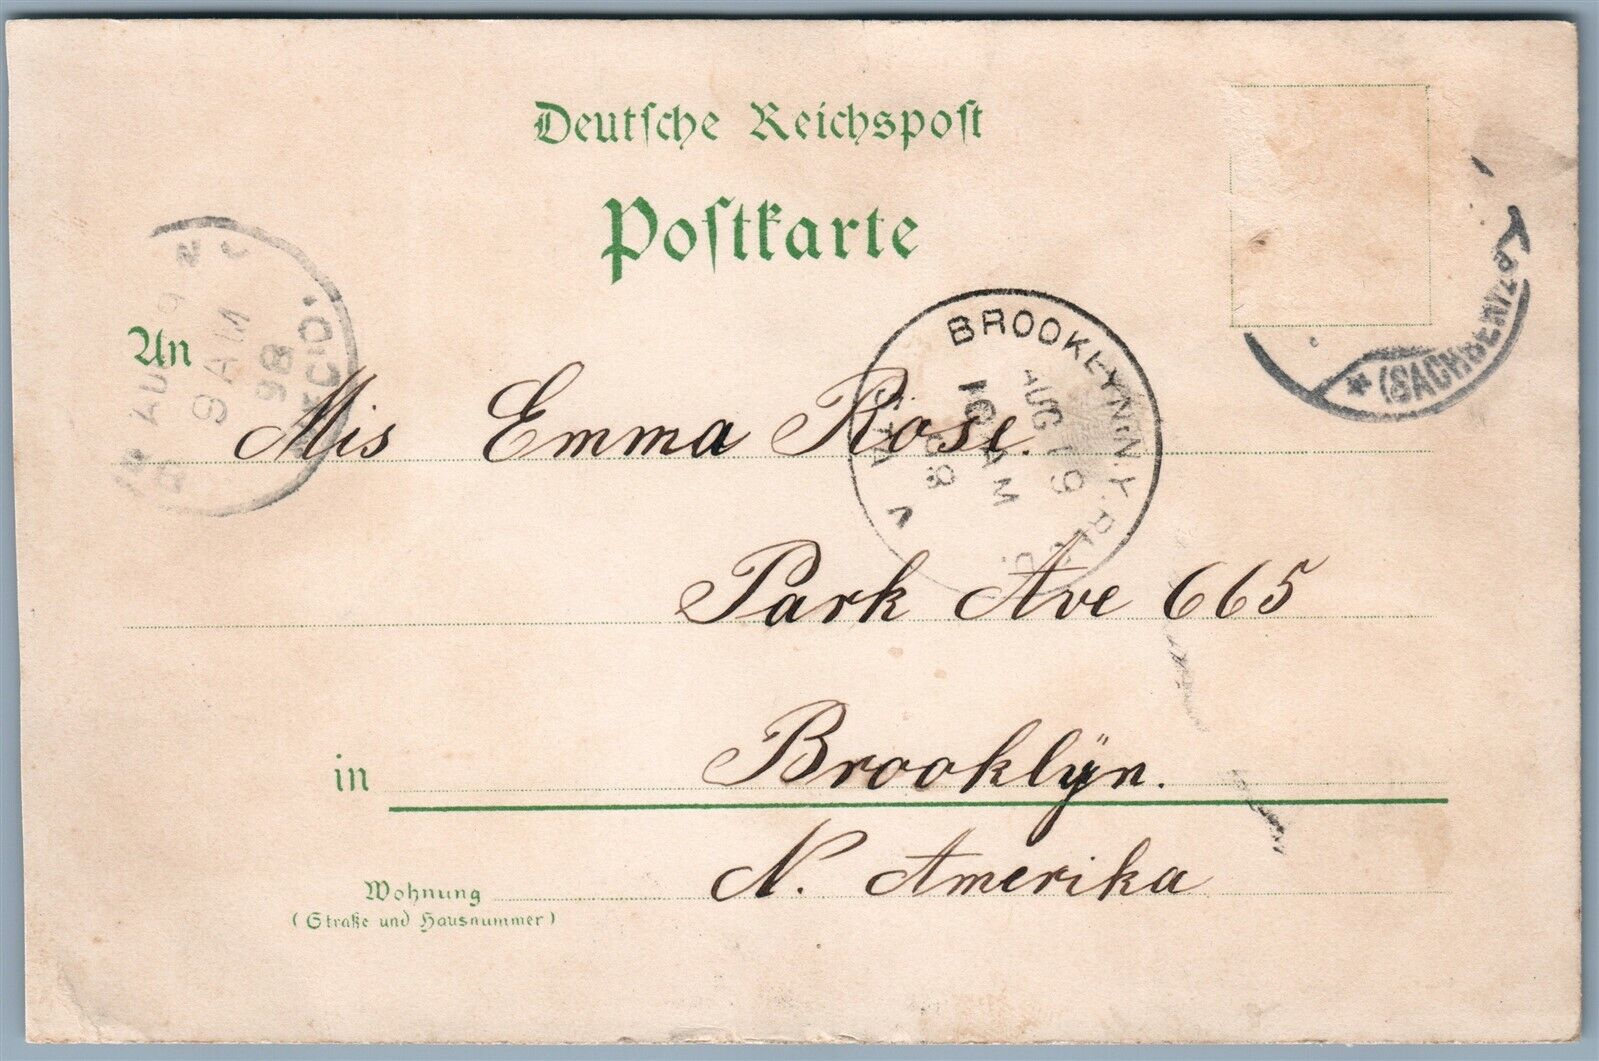 Deutsche Reichspost
Postkarte
An
Mis Emma Rose.
Park Ave 665
in Brooklÿn.
N. Amerika
Wohnung
(Straße und Hausnummer)
BROOKLYN, N.Y.
AUG 19
10 AM
98
AUG
9 AM
98
* (SACHSEN)